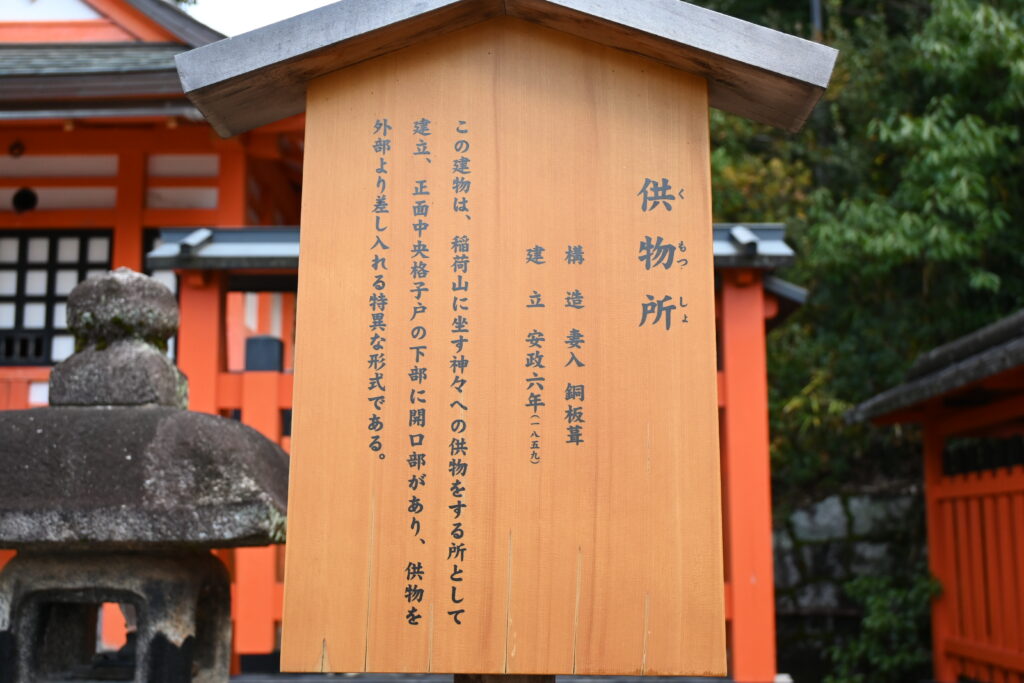 供物所
くもつしょ
構造 妻入 銅板葺
建立 安政六年(一八五九)
この建物は、稲荷山に坐す神々への供物をする所として
建立、正面中央格子戸の下部に開口部があり、供物を
外部より差し入れる特異な形式である。